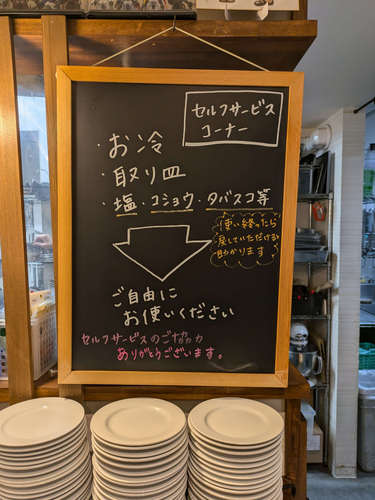 セルフサービス
コーナー
・お冷
・取り皿
・塩・コショウ・タバスコ等
使い終わったら
戻していただけると
助かります
ご自由に
お使いください
セルフサービスのご協力
ありがとうございます。